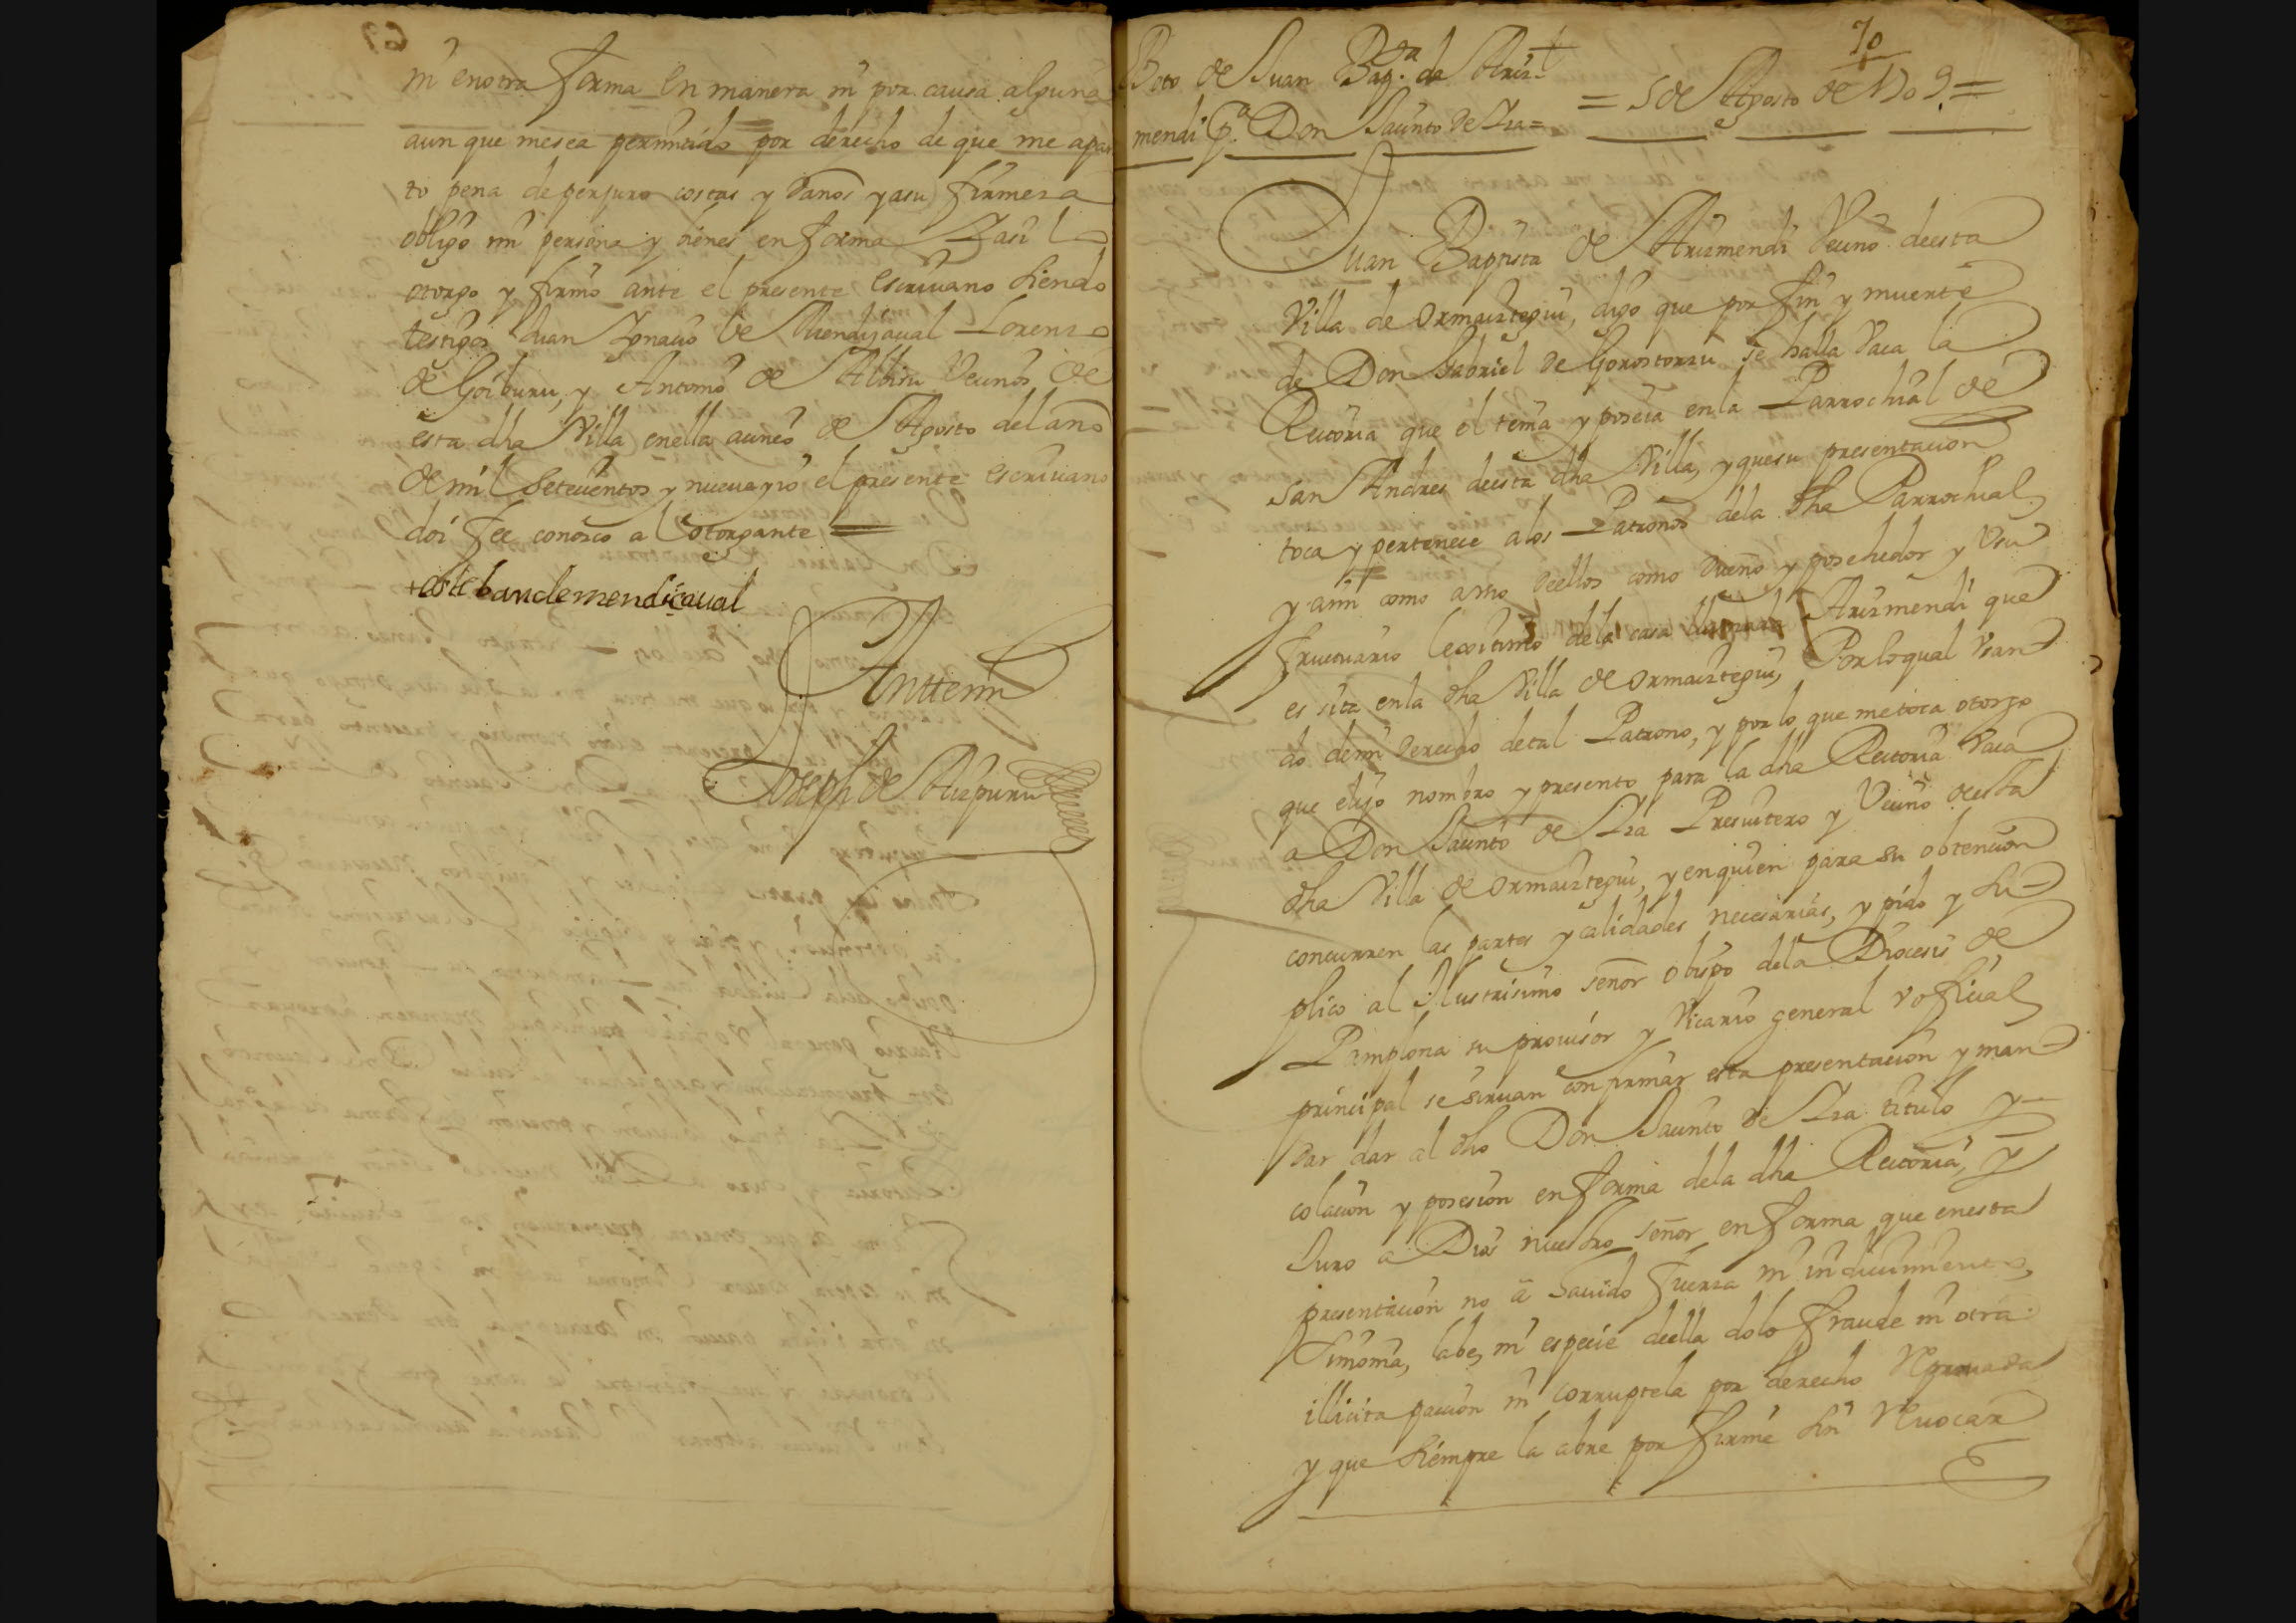 ni en otra forma en manera ni por causa alguna
aun que mesea permitido por derecho de que me apar
to pena de perjuro costas y daños yasu firmeza
obligo mi persona y bienes en forma Yasi lo
otorgo y firmo ante el presente escriuano siendo
testigos Juan Ygnacio de Mendiçaual Lorenzo
de Goiburu, y Antonio de Albisu Vecinos de
esta dha Villa enella acinco de Agosto del año
de mil Setecientos y nueue yio el presente escriuano
doi fee conosco al otorgante
esteban de mendiçaual
Antte mi
Joseph de Aizpuru
70
Boto de Juan Bapta de Ariz-
mendi pa Don Jacinto de Yza =
= 5 de Agosto de 1709 =
Juan Baptista de Arizmendi Vecino deesta
Villa de Ormaiztegui, digo que por fin y muerte
de Don Gabriel de Gorostorzu se halla Vaca la
Rectoria que el tenia y poseia enla Parrochial de
San Andres deesta dha Villa, y quesu presentacion
toca y pertenece alos Patronos dela dha Parrochial,
y ami como a vno deellos como dueño y posehedor y Vsu
fructuario lexitimo dela casa llamada Arizmendi que
es sita enla dha Villa de Ormaiztegui, Porloqual Vsan
do demi derecho detal Patrono, y por lo que metoca otorgo
que elijo nombro y presento para la dha Rectoria Vaca
a Don Jacinto de Yza Presuitero y Vecino deesta
dha Villa de Ormaiztegui, y enquien para su obtencion
concurren las partes y calidades necesarias, y pido y su
plico al Ilustrisimo señor obispo dela Diocesis de
Pamplona su prouisor y Vicario general v oficial
principal se siruan confirmar esta presentacion y man
dar dar al dho Don Jacinto de Yza titulo y
colacion y posesion en forma dela dha Rectoria, y
Juro a Dios nuestro señor en forma que enesta
presentacion no a hauido fuerza ni inducimientos,
simonia, labe, ni especie deella dolo fraude ni otra
illicita paccion ni corruptela por derecho Reprouada
y que siempre la abre por firme sin Reuocar